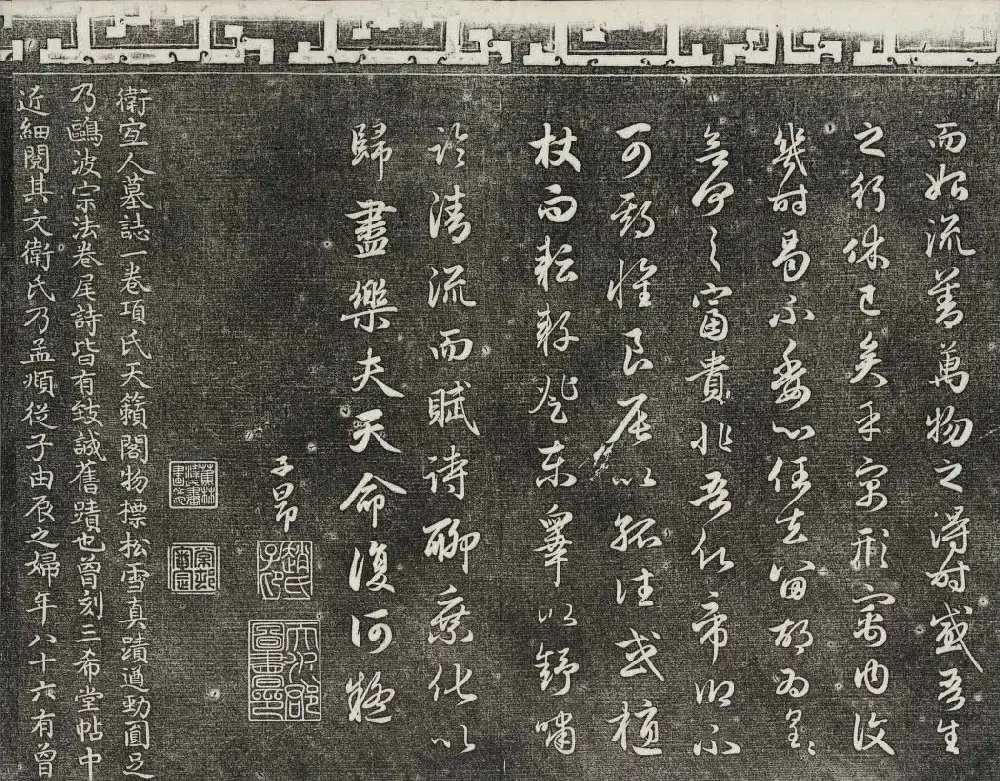 而始流善萬物之得時感吾生
之行休已矣乎寓形寓內復
幾時曷不委心任去留胡為遑〻
欲何之富貴非吾願帝鄉不
可期懷良辰以孤往或植
杖而耘耔登東皋以舒嘯
臨清流而賦詩聊乘化以
歸盡樂夫天命復何疑
子昂
趙氏子昂
天水郡圖書印
衛宜人墓誌一卷項氏天籟閣物標松雪真蹟遒勁圓足
乃鷗波宗法卷尾詩皆有鈙誠舊蹟也曾刻三希堂帖中
近細閱其文衛氏乃孟頫從子由辰之婦年八十六有曾